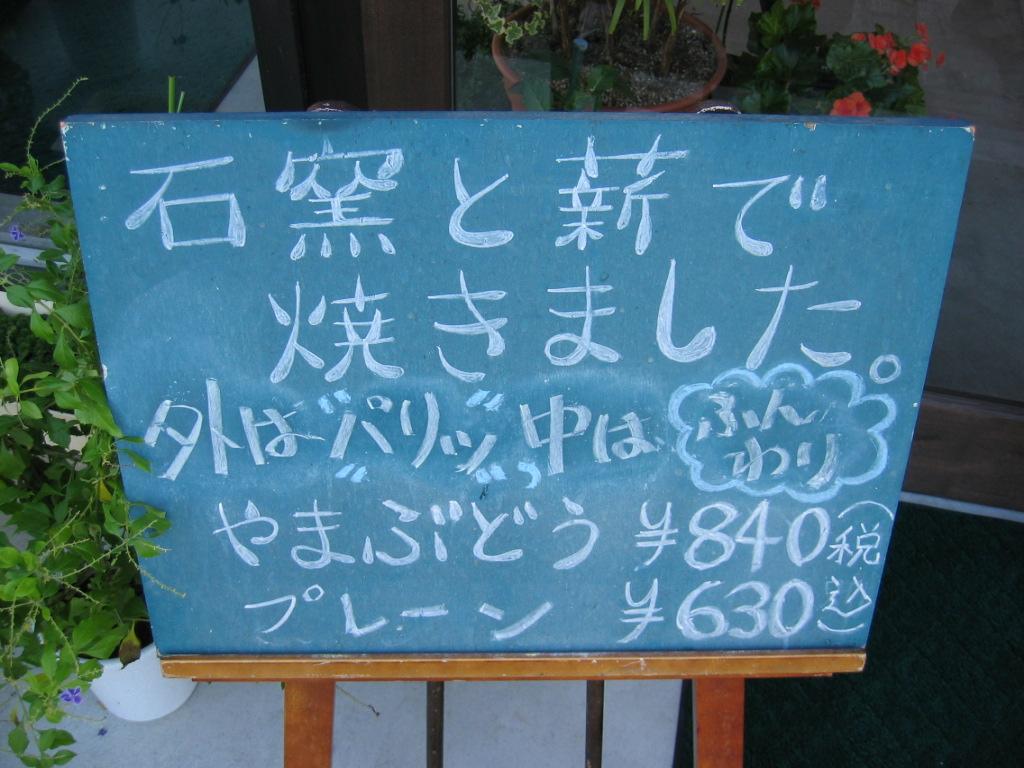 石窯と薪で
焼きました。
外は"パリッ"中はふんわり
やまぶどう ¥840(税込)
プレーン ¥630